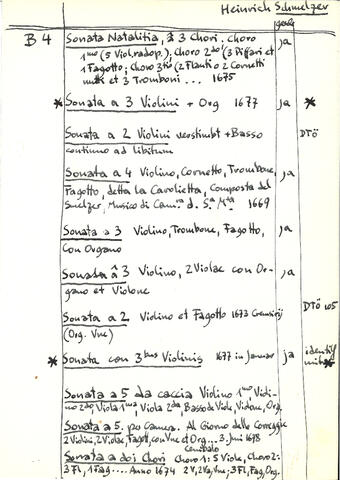 Heinrich Schmelzer
B 4
Sonata Natalitia, à 3 Chori. Choro
1mo (5 Viol. radop.); Choro 2do (3 Piffari et
1 Fagotto; Choro 3tio (2 Flauti o 2 Cornetti
muti et 3 Tromboni ... 1675 ja
* Sonata a 3 Violini + Org 1677 ja *
Sonata a 2 Violini verstimbt + Basso DTÖ
continuo ad libitum
Sonata a 4 Violino, Cornetto, Trombone, ja
Fagotto, detta la Carolietta, Composta del
Smelzer, Musico di Cam.ra d. S.a M.tà 1669
Sonata a 3 Violino, Trombone, Fagotto, ja
con Organo
Sonata à 3 Violino, 2 Violae con Or- ja
gano et Violone
Sonata a 2 Violino et Fagotto 1673 DTÖ 105
(Org. Vnc)
* Sonata con 3bus Violinis 1677 in Januar ja identisch
mit *
Sonata a 5 da caccia Violino 1mo, Violi-
no 2do, Viola 1ma, Viola 2da, Basso de Viole, Violone, Org.
Sonata a 5. po Camera. Al Giorno delle Correggie
2 Violini, 2 Violae, Fagott, con Vne et Org... 3. Juni 1678
Cembalo
Sonata a doi Chori Choro 1: 5 Viole, Choro 2:
3 Fl, 1 Fag.... Anno 1674 2 V, 2 Va, Vne; 3 Fl, Fag, Org.